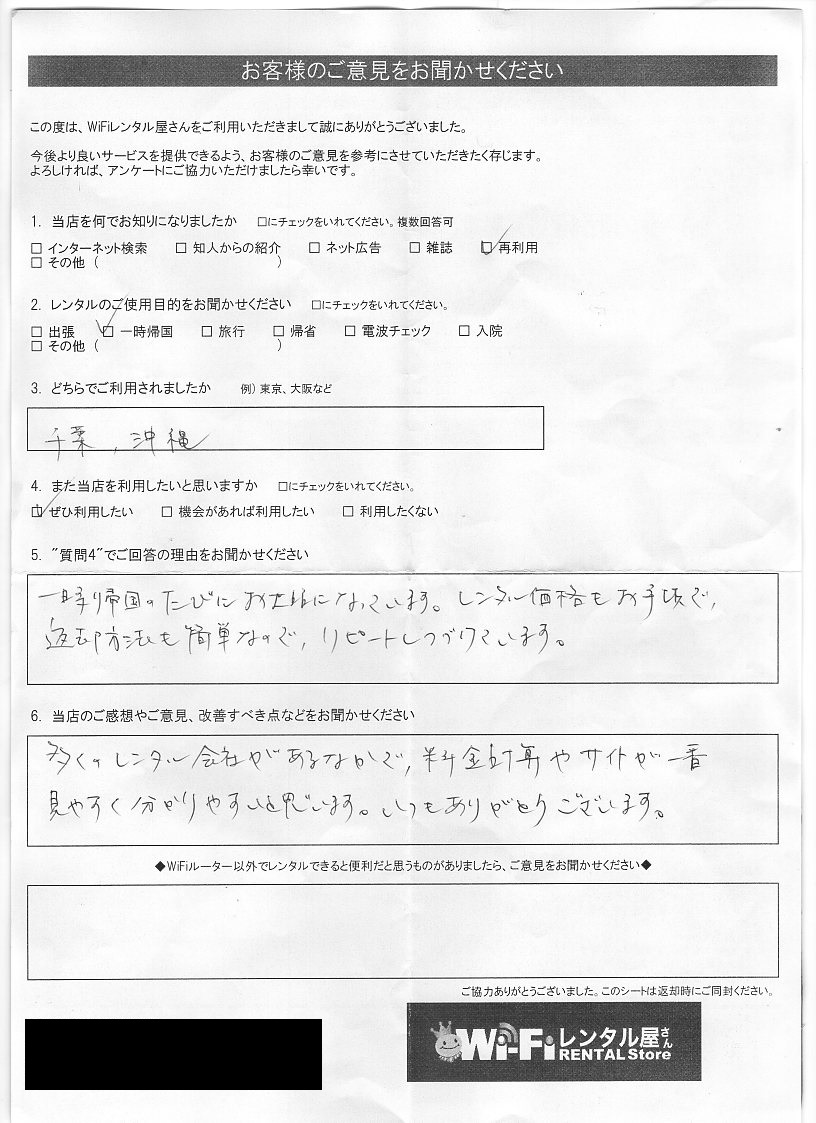 お客様のご意見をお聞かせください
この度は、WiFiレンタル屋さんをご利用いただきまして誠にありがとうございました。
今後より良いサービスを提供できるよう、お客様のご意見を参考にさせていただきたく存じます。
よろしければ、アンケートにご協力いただけましたら幸いです。
1. 当店を何でお知りになりましたか □にチェックをいれてください。複数回答可
□ インターネット検索 □ 知人からの紹介 □ ネット広告 □ 雑誌 ☑ 再利用
□ その他 ( )
2. レンタルのご使用目的をお聞かせください □にチェックをいれてください。
□ 出張 ☑ 一時帰国 □ 旅行 □ 帰省 □ 電波チェック □ 入院
□ その他 ( )
3. どちらでご利用されましたか 例) 東京、大阪など
千葉, 沖縄
4. また当店を利用したいと思いますか □にチェックをいれてください。
☑ ぜひ利用したい □ 機会があれば利用したい □ 利用したくない
5. "質問4"でご回答の理由をお聞かせください
一時帰国のたびにお世話になっています。レンタル価格もお手頃で,
返却方法も簡単なので, リピートしつづけています。
6. 当店のご感想やご意見、改善すべき点などをお聞かせください
多くのレンタル会社があるなかで, 料金計算やサイトが一番
見やすく分かりやすいと思います。いつもありがとうございます。
◆WiFiルーター以外でレンタルできると便利だと思うものがありましたら、ご意見をお聞かせください◆
ご協力ありがとうございました。このシートは返却時にご同封ください。
Wi-Fi レンタル屋さん
RENTAL Store